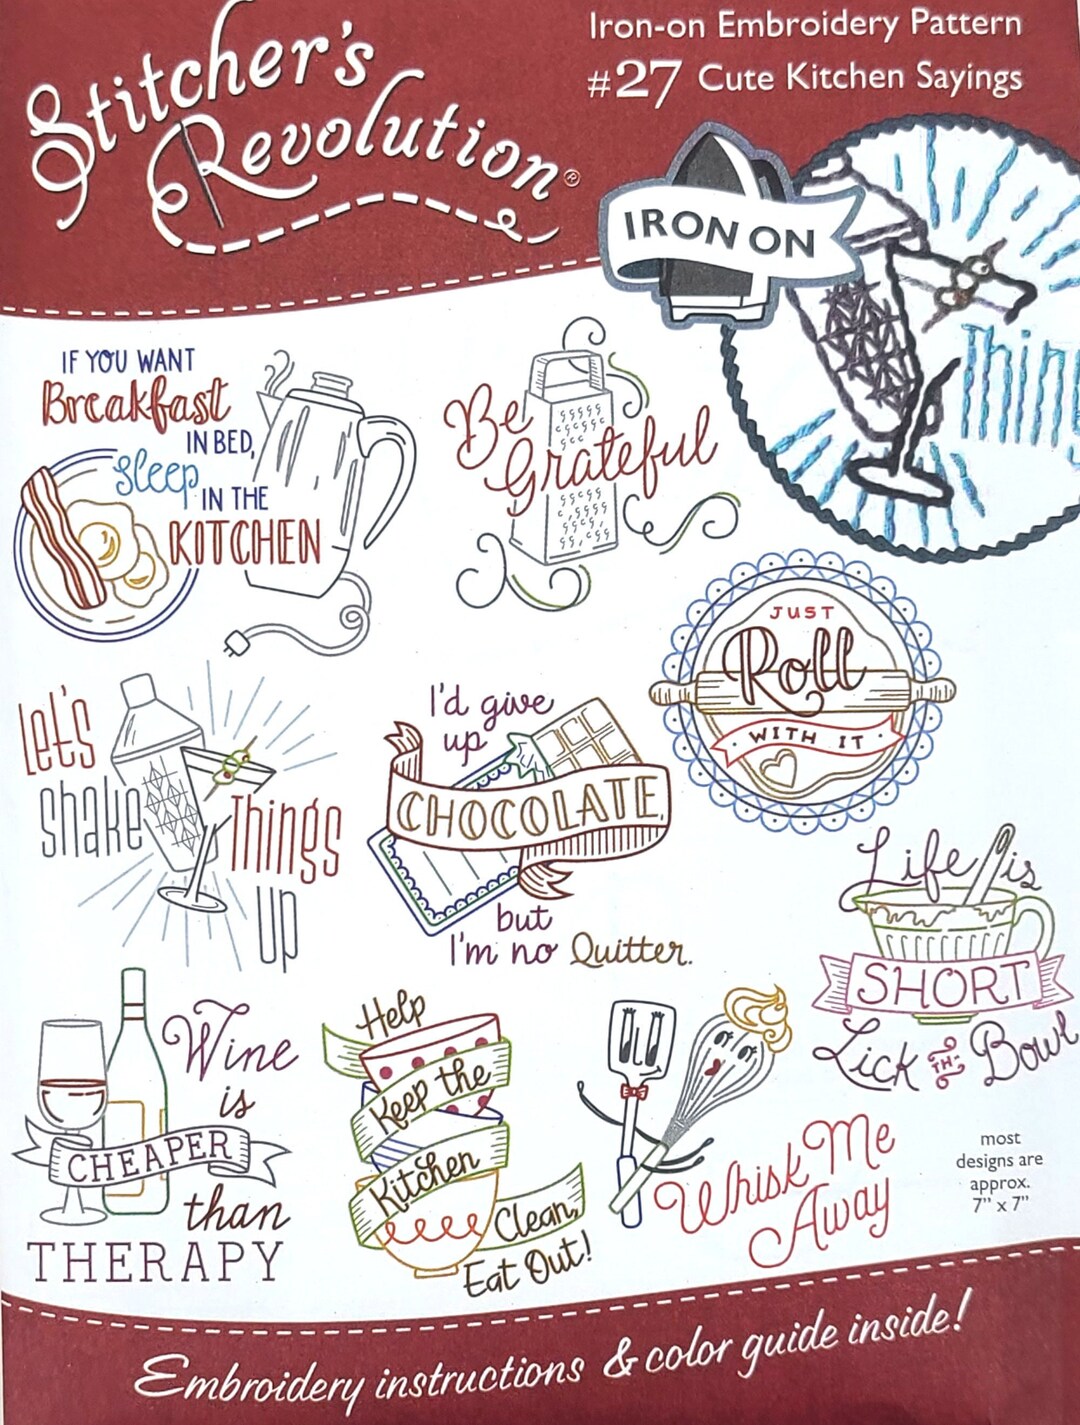 Stitcher's
Revolution®
Iron-on Embroidery Pattern
#27 Cute Kitchen Sayings
IRON ON
Thing
IF YOU WANT
Breakfast
IN BED,
Sleep IN THE
KITCHEN
Be
Grateful
JUST
Roll
WITH IT
Let's
shake
Things
UP
I'd give
up
CHOCOLATE,
but
I'm no Quitter.
Life is
SHORT
Lick TH- Bowl
Wine
is
CHEAPER
than
THERAPY
Help
Keep the
Kitchen
Clean,
Eat Out!
Whisk Me
Away
most
designs are
approx.
7" x 7"
Embroidery instructions & color guide inside!